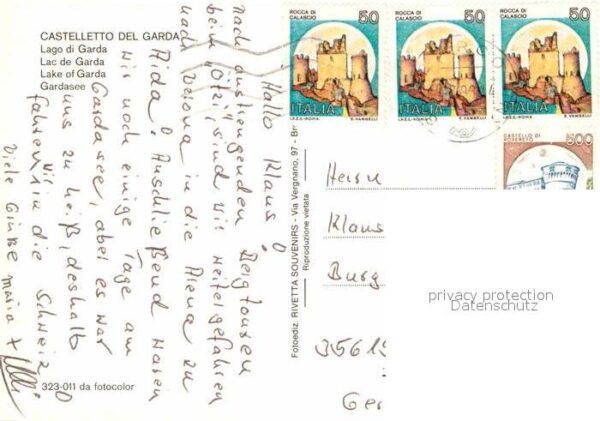 CASTELLETTO DEL GARDA
Lago di Garda
Lac de Garda
Lake of Garda
Gardasee
Hallo Klaus!
nach anstrengenden Bergtouren
beim "Ötzi" sind wir weitergefahren
nach Verona in die Arena zu
Aida! Anschließend waren
wir noch einige Tage am
Gardasee, aber es war
uns zu heiß, deshalb
fahren wir in die Schweiz!
Viele Grüße Maria +
323-011 da fotocolor
Fotoediz. RIVETTA SOUVENIRS - Via Vergnano, 97 - Br
Riproduzione vietata
ROCCA DI CALASCIO
50
ITALIA
I.P.Z.S.-ROMA E. VANGELLI
ROCCA DI CALASCIO
50
ITALIA
I.P.Z.S.-ROMA E. VANGELLI
ROCCA DI CALASCIO
50
ITALIA
I.P.Z.S.-ROMA E. VANGELLI
CASTELLO DI ROVERETO
500
Herrn
Klaus
Burg
3561
Ger
privacy protection
Datenschutz